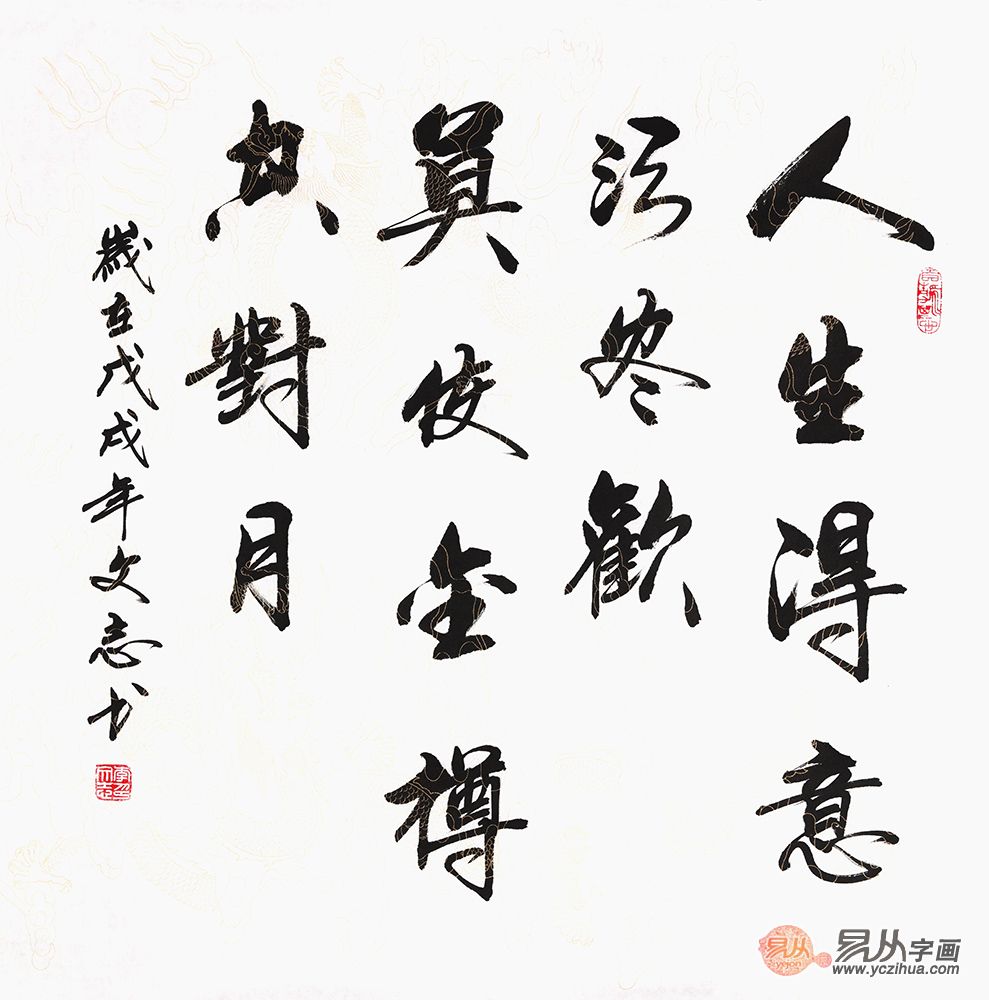 人生得意
須尽歡
莫使金樽
空對月
歲在戊戌年文志书
易从字画
www.yczihua.com